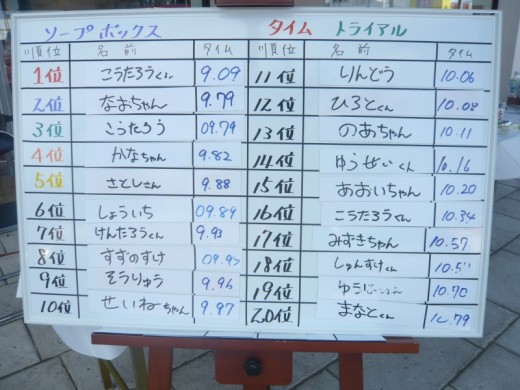 ソープボックス タイム トライアル
順位 名前 タイム 順位 名前 タイム
1位 こうたろうくん 9.09 11位 りんどう 10.06
2位 なおちゃん 9.79 12位 ひろとくん 10.08
3位 こうたろう 09.79 13位 のあちゃん 10.11
4位 かなちゃん 9.82 14位 ゆうせいくん 10.16
5位 さとしさん 9.88 15位 あおいちゃん 10.20
6位 しょういち 09.89 16位 こうたろうくん 10.34
7位 けんたろうくん 9.93 17位 みずきちゃん 10.57
8位 すずのすけ 09.93 18位 しゅんすけくん
9位 そうりゅう 9.96 19位 10.70
10位 せいねちゃん 9.97 20位 まなとくん